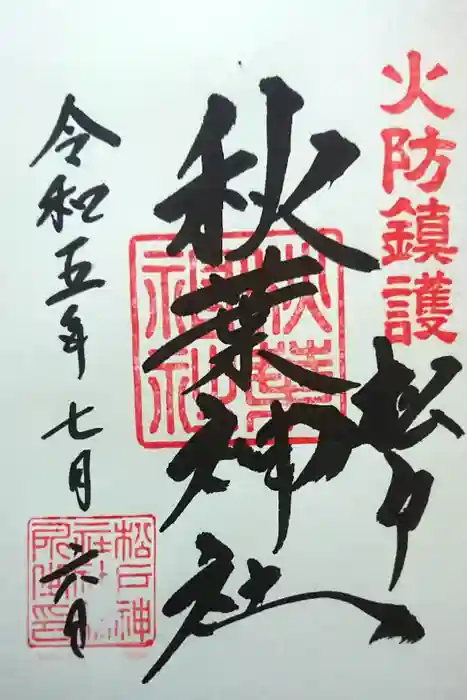 火防鎮護
松戸
秋葉神社
令和五年七月六日
秋葉神社
松戸神
社社務
所偹印